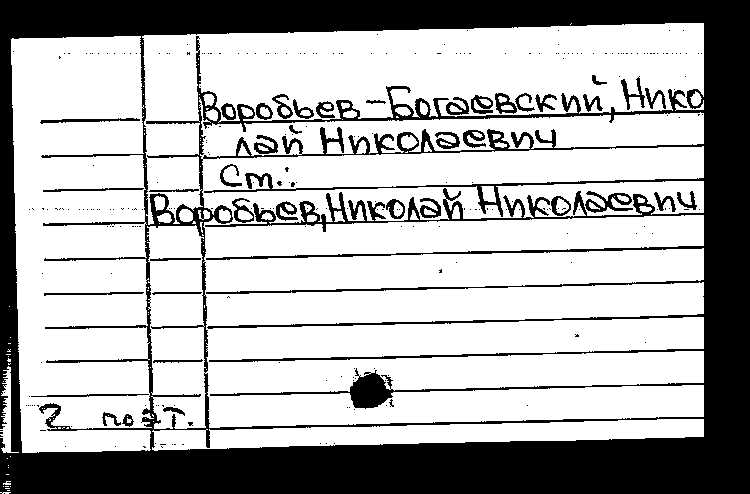 Воробьев-Богаевский, Нико
лай Николаевич
Ст.:
Воробьев, Николай Николаевич
2 поэт.